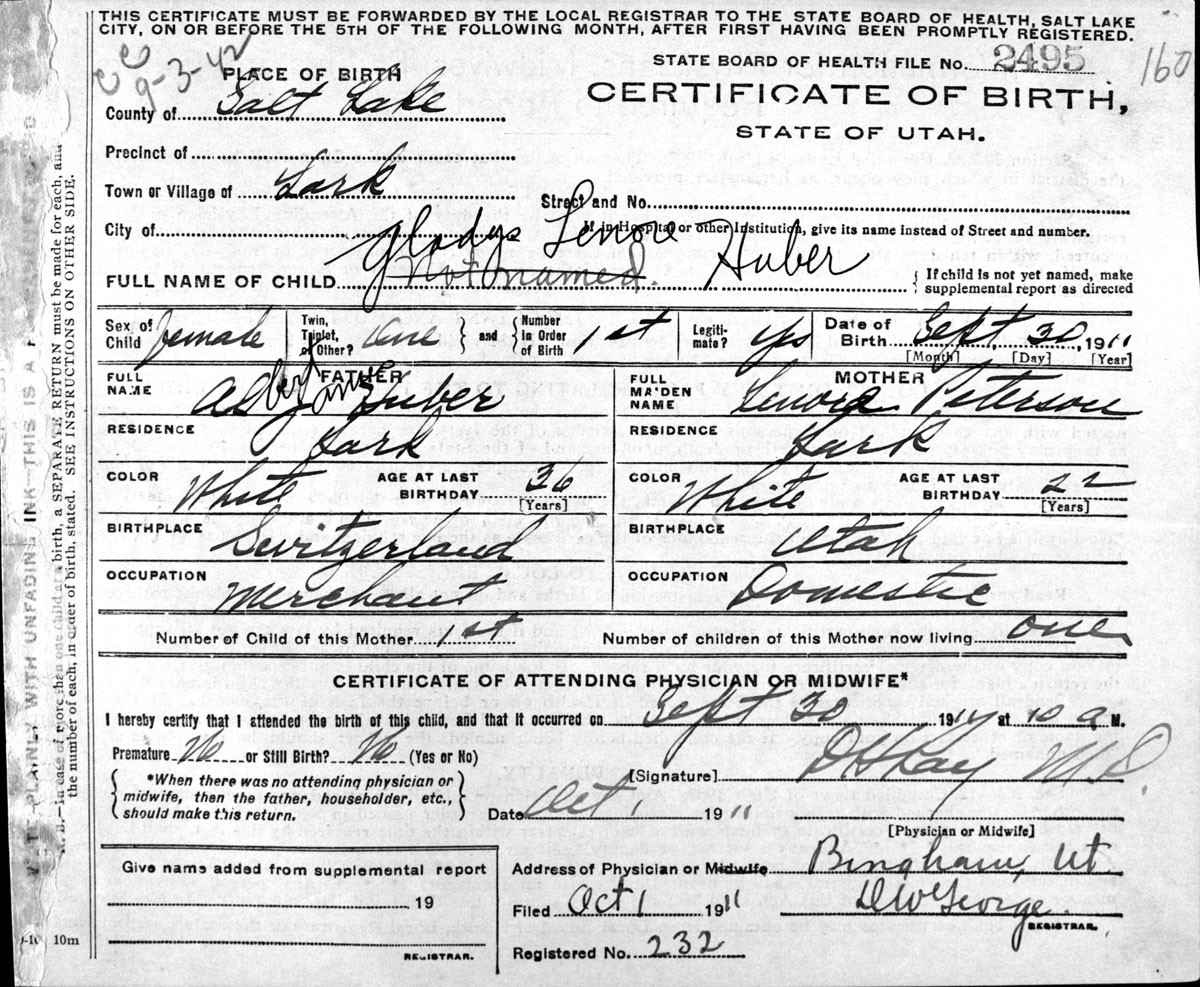 THIS CERTIFICATE MUST BE FORWARDED BY THE LOCAL REGISTRAR TO THE STATE BOARD OF HEALTH, SALT LAKE
CITY, ON OR BEFORE THE 5TH OF THE FOLLOWING MONTH, AFTER FIRST HAVING BEEN PROMPTLY REGISTERED.
CC
9-3-42
160
STATE BOARD OF HEALTH FILE No. 2495
CERTIFICATE OF BIRTH,
STATE OF UTAH.
PLACE OF BIRTH
County of Salt Lake
Precinct of
Town or Village of Lark
Street and No.
City of
If in Hospital or other Institution, give its name instead of Street and number.
Gladys Lenore Huber
FULL NAME OF CHILD Not named.
If child is not yet named, make
supplemental report as directed
Sex of Child female
Twin, Triplet, or Other?
and
Number in Order of Birth 1st
Legitimate? Yes
Date of Birth Sept 30 1911
[Month] [Day] [Year]
FATHER
FULL NAME Albert Huber
RESIDENCE Lark
COLOR White
AGE AT LAST BIRTHDAY 36
[Years]
BIRTHPLACE Switzerland
OCCUPATION Merchant
MOTHER
FULL MAIDEN NAME Lenora Peterson
RESIDENCE Lark
COLOR White
AGE AT LAST BIRTHDAY 22
[Years]
BIRTHPLACE Utah
OCCUPATION Domestic
Number of Child of this Mother 1st
Number of children of this Mother now living one
CERTIFICATE OF ATTENDING PHYSICIAN OR MIDWIFE*
I hereby certify that I attended the birth of this child, and that it occurred on Sept 30 191 at 10 a M.
Premature No or Still Birth? No (Yes or No)
*When there was no attending physician or
midwife, then the father, householder, etc.,
should make this return.
[Signature] M.D.
Date Oct 1 1911
[Physician or Midwife]
Give name added from supplemental report
19
REGISTRAR.
Address of Physician or Midwife Bingham, Ut.
Filed Oct 1 1911
REGISTRAR.
Registered No. 232
10m
PLAINLY WITH UNFADING INK—THIS IS A
N. B.—In case of more than one child at a birth, a SEPARATE RETURN must be made for each, and
the number of each, in order of birth, stated. SEE INSTRUCTIONS ON OTHER SIDE.